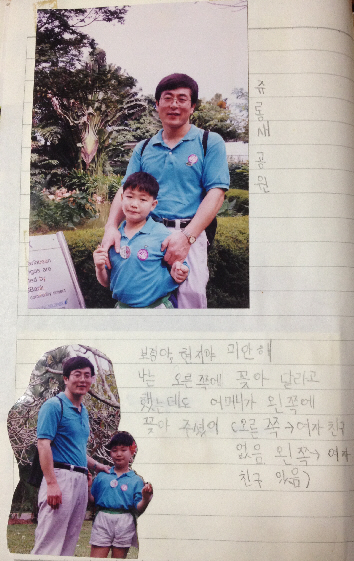 쥬롱새 공원
미안해
나는 오른쪽에 꽂아 달라고
했는데도 어머니가 왼쪽에
꽂아 주셨어 (오른 쪽→여자 친구
없음, 왼쪽→ 여자
친구 있음)